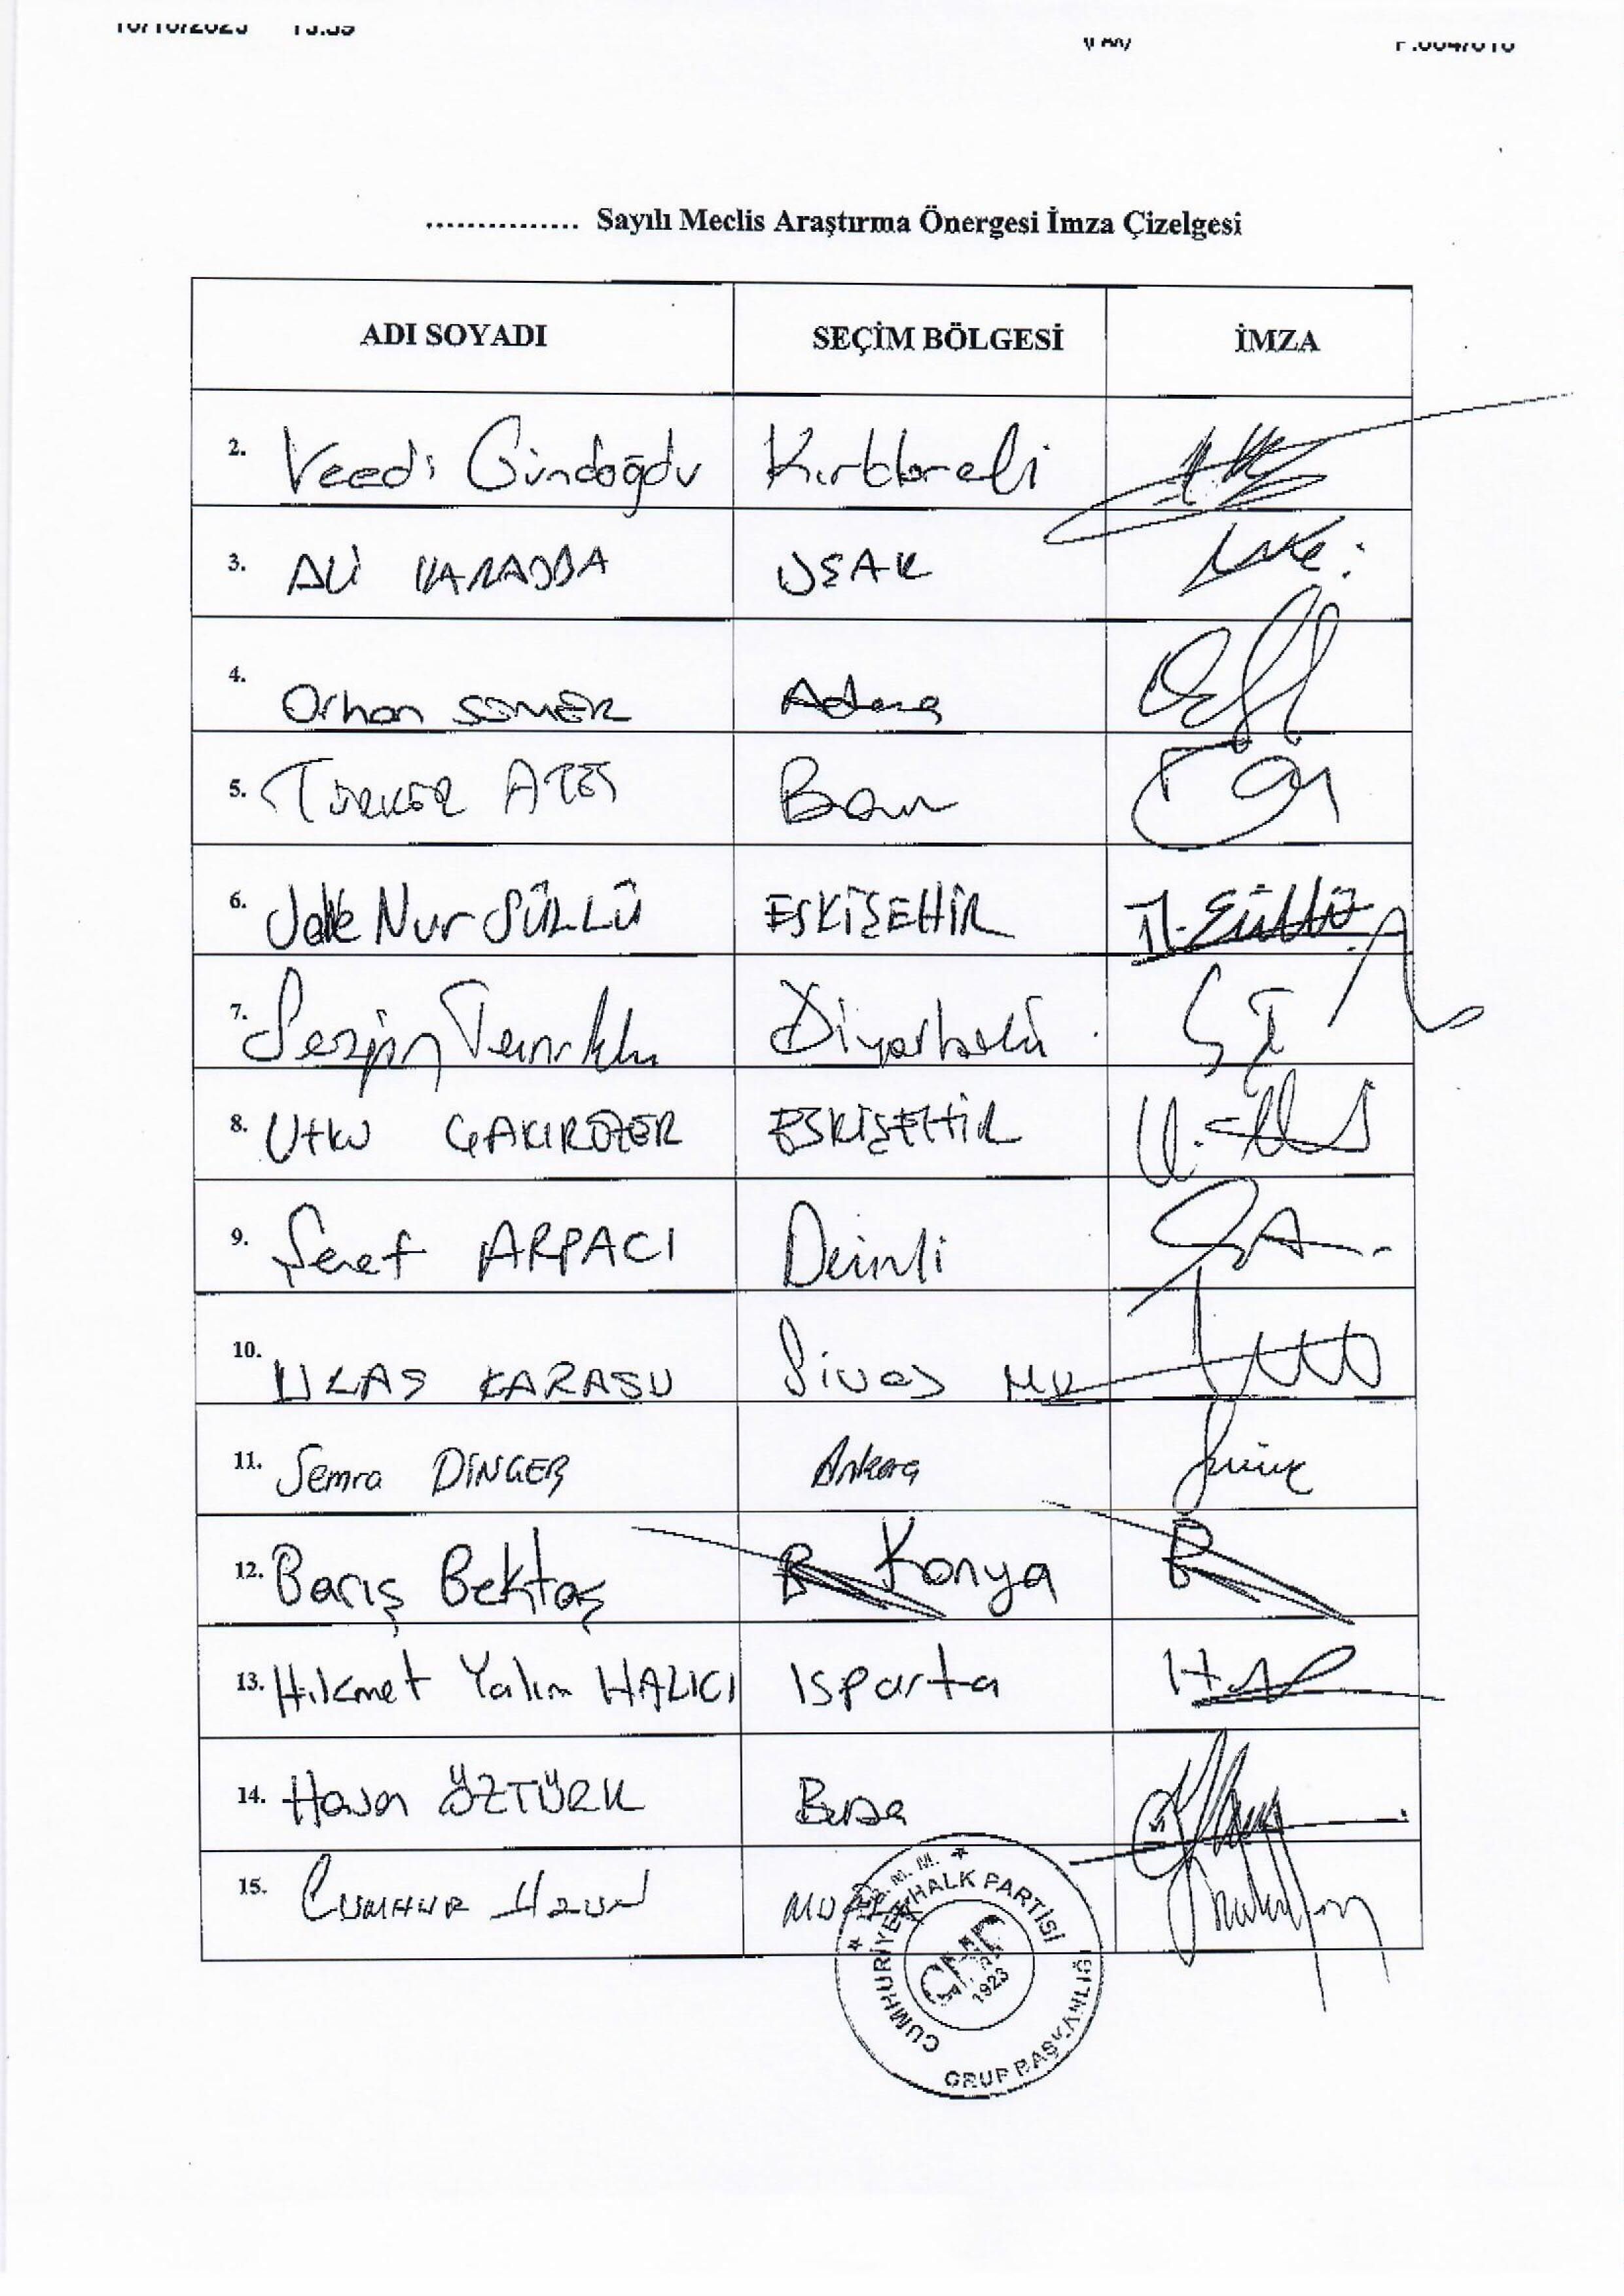 10/10/2023 13:39
(FAX) P.004/010
............... Sayılı Meclis Araştırma Önergesi İmza Çizelgesi
ADI SOYADI SEÇİM BÖLGESİ İMZA
2. Vecdi Gündoğdu Kırklareli
3. ALİ KARAOBA UŞAK
4. Orhan SÜMER Adana
5. TÜRKER ATEŞ Bolu
6. Jale Nur SÜLLÜ ESKİŞEHİR
7. Sezgin Tanrıkulu Diyarbakır
8. Utku ÇAKIRÖZER ESKİŞEHİR
9. Şeref ARPACI Denizli
10. ULAŞ KARASU Sivas MV
11. Semra DİNÇER Ankara
12. Barış Bektaş Konya
13. Hikmet Yalım HALICI Isparta
14. Hasan ÖZTÜRK Bursa
15. CUMHUR UZUN
T.B.M.M.
CUMHURİYET HALK PARTİSİ
CHP
1923
GRUP BAŞKANLIĞI